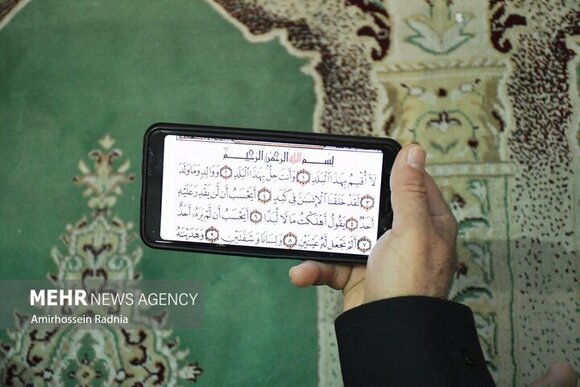 بِسْمِ اللهِ الرَّحْمٰنِ الرَّحِيمِ
لَآ أُقْسِمُ بِهَٰذَا الْبَلَدِ ۝١ وَأَنتَ حِلٌّ بِهَٰذَا الْبَلَدِ ۝٢ وَوَالِدٍ وَمَا وَلَدَ
۝٣ لَقَدْ خَلَقْنَا الْإِنسَٰنَ فِي كَبَدٍ ۝٤ أَيَحْسَبُ أَن لَّن يَقْدِرَ عَلَيْهِ
أَحَدٌ ۝٥ يَقُولُ أَهْلَكْتُ مَالًا لُّبَدًا ۝٦ أَيَحْسَبُ أَن لَّمْ يَرَهُۥٓ أَحَدٌ
۝٧ أَلَمْ نَجْعَل لَّهُۥ عَيْنَيْنِ ۝٨ وَلِسَانًا وَشَفَتَيْنِ ۝٩ وَهَدَيْنَٰهُ
MEHR NEWS AGENCY
Amirhossein Radnia